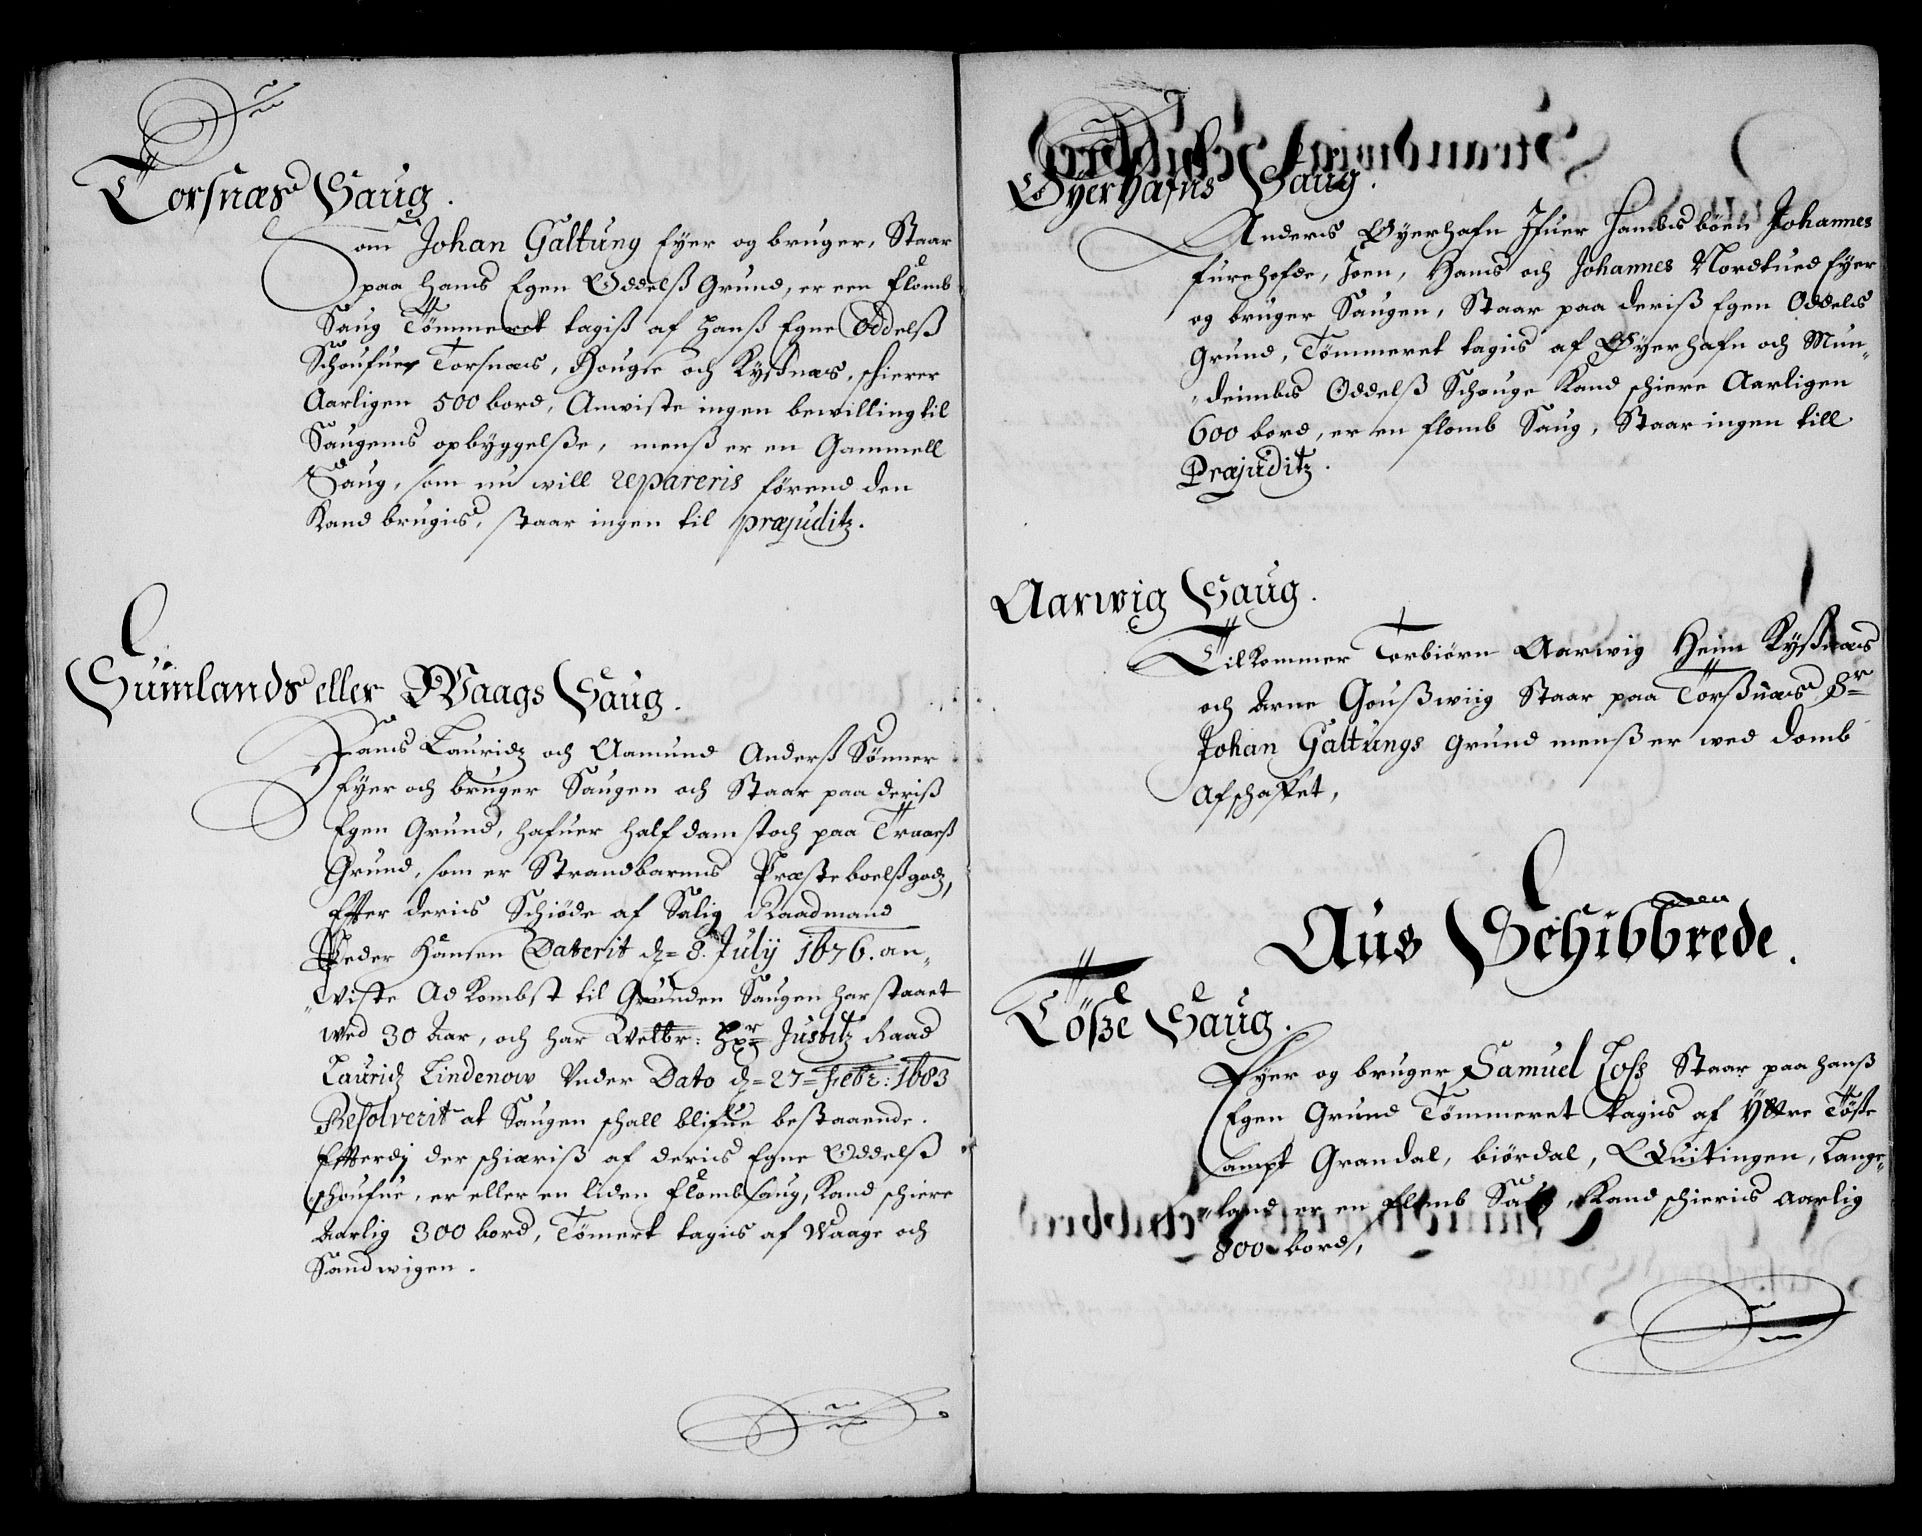 Torsnæs Saug.
Som Johan Galtung Eÿer og bruger, Staar
paa hans Egen Oddelß Grund, er een flomb
Saug Tømmeret tagiß af hanß Egne Oddelß
Schoufue Torsnæs, Houge och Kÿsnæs, schierer
Aarligen 500 bord, Anwiste ingen bewilling til
Saugens opbÿggelße, menß er en Gammell
Saug, som nu will repareris førend den
Kand brugis, staar ingen til præjuditz.
Sumlands eller Waags Saug.
Hans Lauridz och Aamund Anderß Sønner
Eÿer och bruger Saugen och Staar paa deriß
Egen Grund, hafuer half damstoch paa Traaeß
Grund, som er Strandbarms Præsteboelßgodz,
Efter deris Schiøde af Salig Raadmand
Peder Hansen Daterit d= 8. Julÿ 1676. an„
„wiste Adkombst til Grunden Saugen har staaet
wed 30 Aar, och har Welbr: Hr= Justitz Raad
Lauridz Lindenow Under Dato d= 27= Febr: 1683
Resolverit at Saugen schall blifue bestaaende.
Efterdj der schiæriß af deris Egne Oddelß
schoufue, er eller en liden flombsaug, Kand schiere
Aarlig 300 bord, Tømert tagis af Waage och
Sandwigen.
Øÿerhafns Saug.
Anders Øÿerhafn Ifuer Hambisbøen Johannes
furehofde, Joen, Hans och Johannes Nordtued Eÿer
og bruger Saugen, Staar paa deriß Egen Oddels
Grund, Tømmeret tagis af Øÿerhafn och Mun„
„deimbs Oddelß Schouge Kand schiere Aarligen
600 bord, er en flomb Saug, Staar ingen till
Præjuditz.
Aarwig Saug.
Tilkommer Torbiørn Aarwig Heine Kÿsnæs
och Arne Goußwiig Staar paa Torßnæs Sr=
Johan Galtungs Grund menß er wed Domb
Afschaffet,
Aus Schibbrede.
Tøße Saug.
Eÿer og bruger Samuel Loss Staar paa hanß
Egen Grund Tømmeret tagis af Ÿttre Tøße
Campt Grandal, biørdal, Quitingen, Lange„
„land er en flomb Saug, Kand schieris Aarlig
800 bord,